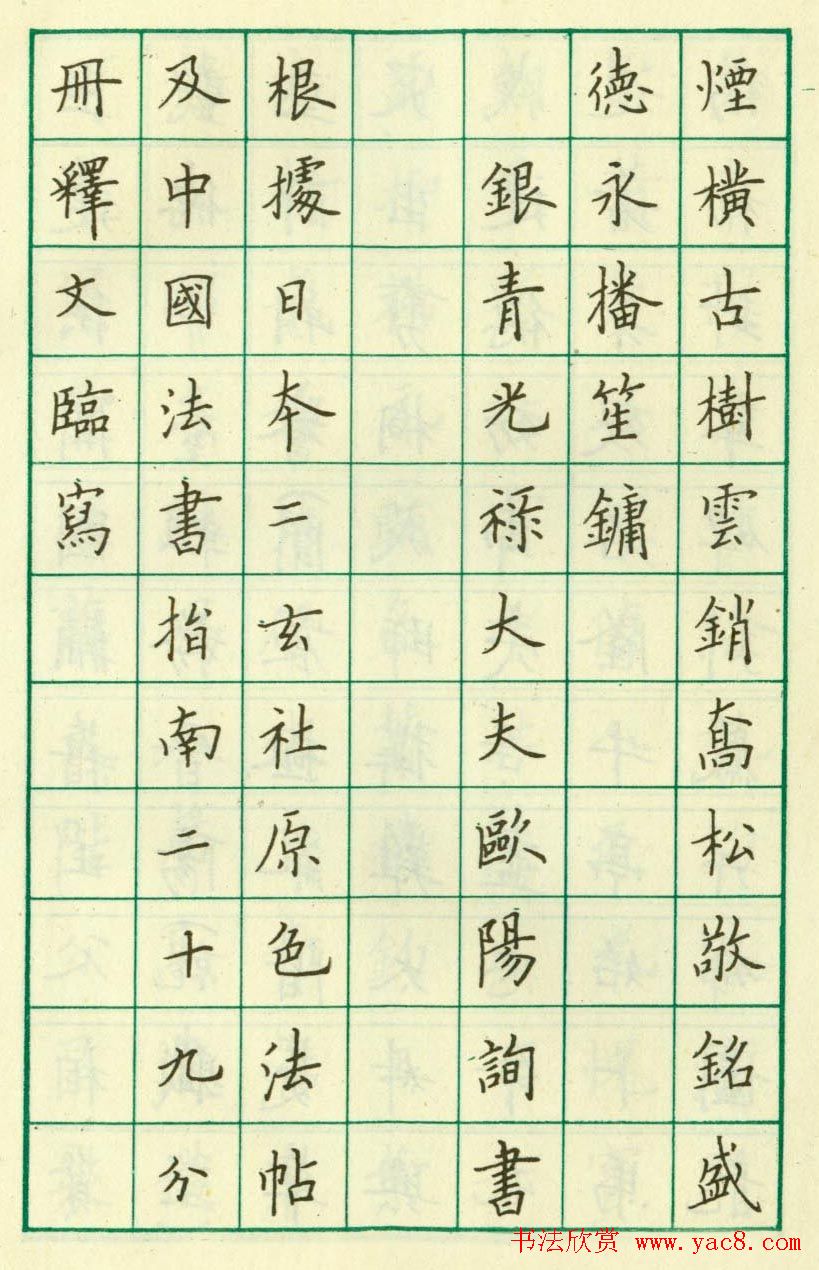 煙橫古樹雲銷喬松敬銘盛
德永播笙鏞
銀青光祿大夫歐陽詢書
根據日本二玄社原色法帖
及中國法書指南二十九分
冊釋文臨寫
书法欣赏 www.yac8.com